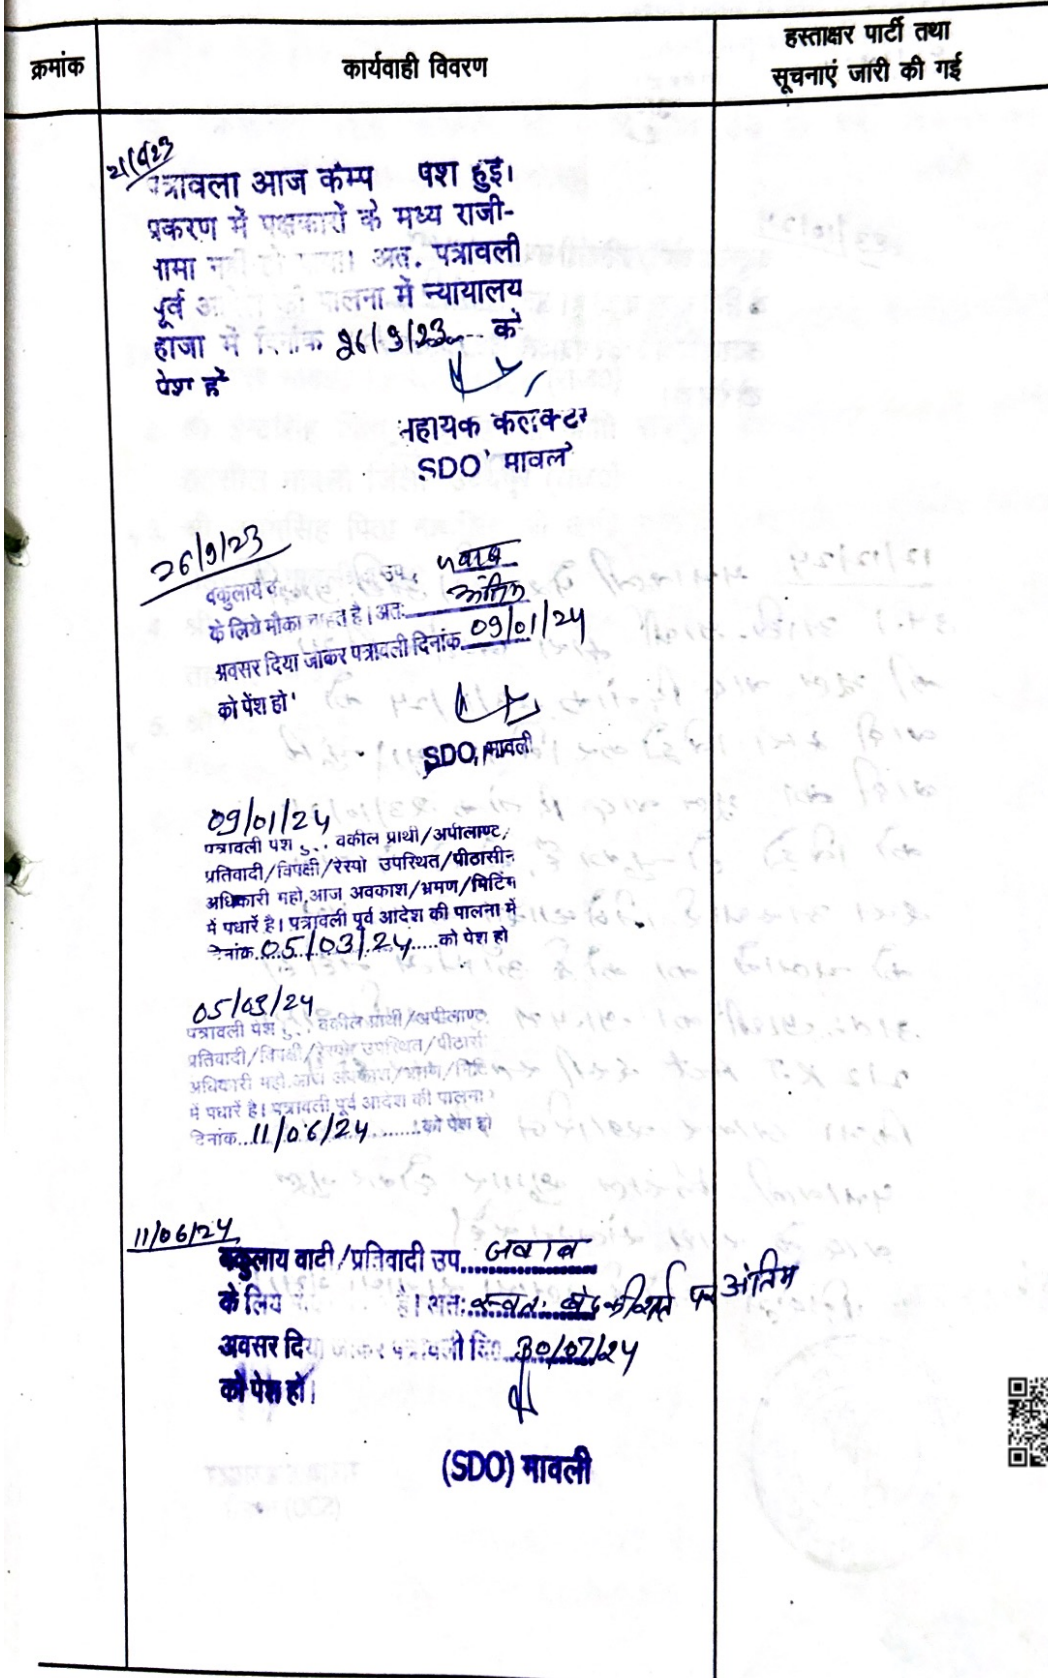 क्रमांक
कार्यवाही विवरण
हस्ताक्षर पार्टी तथा
सूचनाएं जारी की गई
पत्रावला आज कम्प पश हुइ।
प्रकरण में पक्षकारों के मध्य राजी-
नामा नहीं हो पाया। अत. पत्रावली
पूर्व आदेश की पालना में न्यायालय
हाजा में दिनांक 26/9/23 को
पेश हो
सहायक कलक्टर
SDO मावली
26/9/23
वकुलाय उप. जवाब
के लिये मौका चाहत है। अतः अंतिम
अवसर दिया जाकर पत्रावली दिनांक 09/01/24
को पेंश हो
SDO, मावली
09/01/24
पत्रावली पश वकील प्रार्थी/अपीलाण्ट,
प्रतिवादी/विपक्षी/रेस्पो उपस्थित/पीठासीन
अधिकारी महो.आज अवकाश/भ्रमण/मिटिंग
में पधारें है। पत्रावली पूर्व आदेश की पालना में
दिनांक..05/03/24.....को पेश हो
05/03/24
पत्रावली पेश वकील प्रार्थी/अपीलाण्ट
प्रतिवादी/विपक्षी/रेस्पो उपस्थित/पीठासी
अधिकारी महो.आज अवकाश/भ्रमण/मिटि
में पधारें है। पत्रावली पूर्व आदेश की पालना
दिनांक..11/06/24.....को पेश हो
11/06/24
वकुलाय वादी/प्रतिवादी उप....जवाब
के लिय है। अतः स्वतः बंद की शर्त पर अंतिम
अवसर दिया जाकर पत्रावली दि. 30/07/24
को पेश हो।
(SDO) मावली